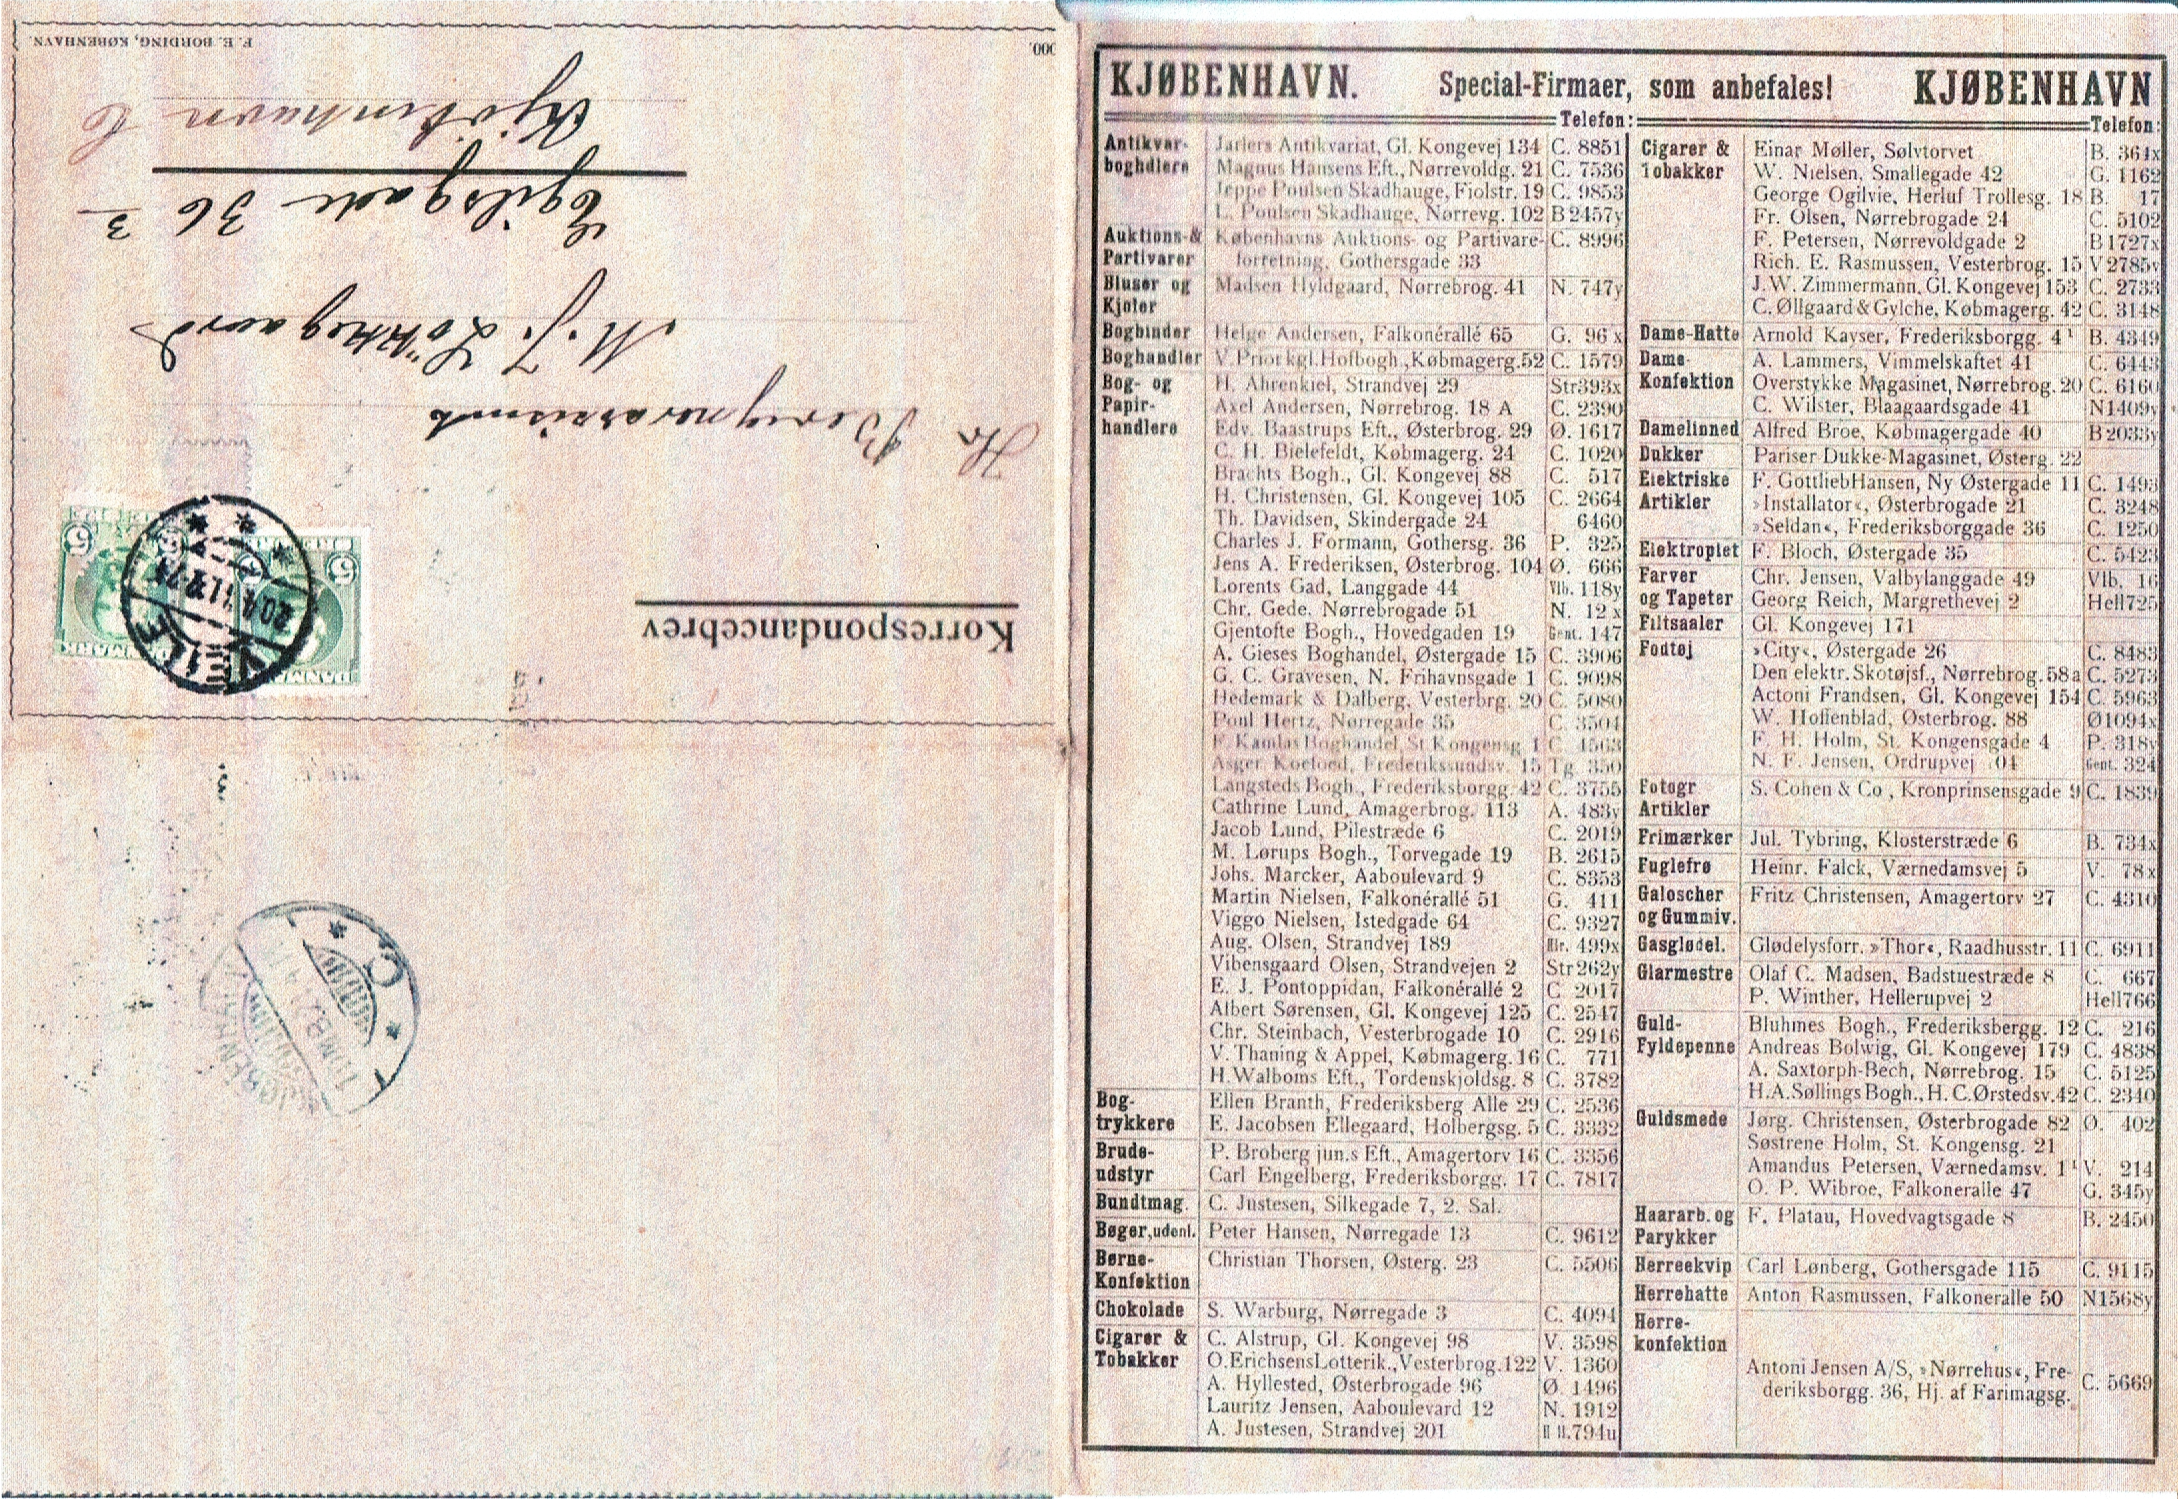 Korrespondancebrev
DANMARK
DANMARK
5
5
5
5
VEJLE
Hr
M. J.
Egilsgade 36 3
Kjöbenhavn
F. E. BORDING, KØBENHAVN.
000.
KJØBENHAVN. Special-Firmaer, som anbefales! KJØBENHAVN
Telefon:
Antikvar- Jarlers Antikvariat, Gl. Kongevej 134 C. 8851
boghdlere Magnus Hansens Eft., Nørrevoldg. 21 C. 7536
Jeppe Poulsen Skadhauge, Fiolstr. 19 C. 9853
L. Poulsen Skadhauge, Nørrevg. 102 B 2457y
Auktions-& Københavns Auktions- og Partivare- C. 8996
Partivarer forretning, Gothersgade 33
Bluser og Madsen Hyldgaard, Nørrebrog. 41 N. 747y
Kjoler
Bogbinder Helge Andersen, Falkonérallé 65 G. 96 x
Boghandler V. Prior kgl. Hofbogh., Købmagerg. 52 C. 1579
Bog- og H. Ahrenkiel, Strandvej 29 Str393x
Papir- Axel Andersen, Nørrebrog. 18 A C. 2390
handlere Edv. Baastrups Eft., Østerbrog. 29 Ø. 1617
C. H. Bielefeldt, Købmagerg. 24 C. 1020
Brachts Bogh., Gl. Kongevej 88 C. 517
H. Christensen, Gl. Kongevej 105 C. 2664
Th. Davidsen, Skindergade 24 6460
Charles J. Formann, Gothersg. 36 P. 325
Jens A. Frederiksen, Østerbrog. 104 Ø. 666
Lorents Gad, Langgade 44 Vlb. 118y
Chr. Gede, Nørrebrogade 51 N. 12 x
Gjentofte Bogh., Hovedgaden 19 Gent. 147
A. Gieses Boghandel, Østergade 15 C. 3906
G. C. Gravesen, N. Frihavnsgade 1 C. 9098
Hedemark & Dalberg, Vesterbrg. 20 C. 5080
Poul Hertz, Nørregade 35 C. 3504
F. Kamlas Boghandel, St. Kongensg. 1 C. 4563
Asger Koefoed, Frederikssundsv. 15 Tg. 350
Langsteds Bogh., Frederiksborgg. 42 C. 3755
Cathrine Lund, Amagerbrog. 113 A. 483y
Jacob Lund, Pilestræde 6 C. 2019
M. Lorups Bogh., Torvegade 19 B. 2615
Johs. Marcker, Aaboulevard 9 C. 8353
Martin Nielsen, Falkonérallé 51 G. 411
Viggo Nielsen, Istedgade 64 C. 9327
Aug. Olsen, Strandvej 189 Hlr. 499x
Vibensgaard Olsen, Strandvejen 2 Str262y
E. J. Pontoppidan, Falkonérallé 2 C. 2017
Albert Sørensen, Gl. Kongevej 125 C. 2547
Chr. Steinbach, Vesterbrogade 10 C. 2916
V. Thaning & Appel, Købmagerg. 16 C. 771
H. Walboms Eft., Tordenskjoldsg. 8 C. 3782
Bog- Ellen Branth, Frederiksberg Alle 29 C. 2536
trykkere E. Jacobsen Ellegaard, Holbergsg. 5 C. 3332
Brude- P. Broberg jun.s Eft., Amagertorv 16 C. 3356
udstyr Carl Engelberg, Frederiksborgg. 17 C. 7817
Bundtmag. C. Justesen, Silkegade 7, 2. Sal.
Bøger, udenl. Peter Hansen, Nørregade 13 C. 9612
Børne- Christian Thorsen, Østerg. 23 C. 5506
Konfektion
Chokolade S. Warburg, Nørregade 3 C. 4094
Cigarer & C. Alstrup, Gl. Kongevej 98 V. 3598
Tobakker O. Erichsens Lotterik., Vesterbrog. 122 V. 1360
A. Hyllested, Østerbrogade 96 Ø. 1496
Lauritz Jensen, Aaboulevard 12 N. 1912
A. Justesen, Strandvej 201 794u
Telefon:
Cigarer & Einar Møller, Sølvtorvet B. 364x
Tobakker W. Nielsen, Smallegade 42 G. 1162
George Ogilvie, Herluf Trollesg. 18 B. 17
Fr. Olsen, Nørrebrogade 24 C. 5102
F. Petersen, Nørrevoldgade 2 B 1727x
Rich. E. Rasmussen, Vesterbrog. 15 V 2785v
J. W. Zimmermann, Gl. Kongevej 153 C. 2733
C. Øllgaard & Gylche, Købmagerg. 42 C. 3148
Dame-Hatte Arnold Kayser, Frederiksborgg. 4¹ B. 4349
Dame- A. Lammers, Vimmelskaftet 41 C. 6443
Konfektion Overstykke Magasinet, Nørrebrog. 20 C. 6160
C. Wilster, Blaagaardsgade 41 N1409y
Damelinned Alfred Broe, Købmagergade 40 B 2033y
Dukker Pariser Dukke-Magasinet, Østerg. 22
Elektriske F. Gottlieb Hansen, Ny Østergade 11 C. 1493
Artikler »Installator«, Østerbrogade 21 C. 3248
»Seldan«, Frederiksborggade 36 C. 1250
Elektroplet F. Bloch, Østergade 35 C. 5423
Farver Chr. Jensen, Valbylanggade 49 Vlb. 16
og Tapeter Georg Reich, Margrethevej 2 Hell725
Filtsaaler Gl. Kongevej 171
Fodtøj »City«, Østergade 26 C. 8483
Den elektr. Skotøjsf., Nørrebrog. 58a C. 5273
Actoni Frandsen, Gl. Kongevej 154 C. 5963
W. Hoffenblad, Østerbrog. 88 Ø1094x
F. H. Holm, St. Kongensgade 4 P. 318y
N. F. Jensen, Ordrupvej Gent. 324
Fotogr S. Cohen & Co., Kronprinsensgade 9 C. 1839
Artikler
Frimærker Jul. Tybring, Klosterstræde 6 B. 734x
Fuglefrø Heinr. Falck, Værnedamsvej 5 V. 78x
Galoscher Fritz Christensen, Amagertorv 27 C. 4310
og Gummiv.
Gasglødel. Glødelysforr. »Thor«, Raadhusstr. 11 C. 6911
Glarmestre Olaf C. Madsen, Badstuestræde 8 C. 667
P. Winther, Hellerupvej 2 Hell766
Guld- Bluhmes Bogh., Frederiksbergg. 12 C. 216
Fyldepenne Andreas Bolwig, Gl. Kongevej 179 C. 4838
A. Saxtorph-Bech, Nørrebrog. 15 C. 5125
H. A. Søllings Bogh., H. C. Ørstedsv. 42 C. 2340
Guldsmede Jørg. Christensen, Østerbrogade 82 Ø. 402
Søstrene Holm, St. Kongensg. 21
Amandus Petersen, Værnedamsv. 1¹ V. 214
O. P. Wibroe, Falkoneralle 47 G. 345y
Haararb. og F. Platau, Hovedvagtsgade 8 B. 2450
Parykker
Herreekvip Carl Lønberg, Gothersgade 115 C. 9115
Herrehatte Anton Rasmussen, Falkoneralle 50 N1568y
Herre-
konfektion
Antoni Jensen A/S, »Nørrehus«, Fre-
deriksborgg. 36, Hj. af Farimagsg. C. 5669